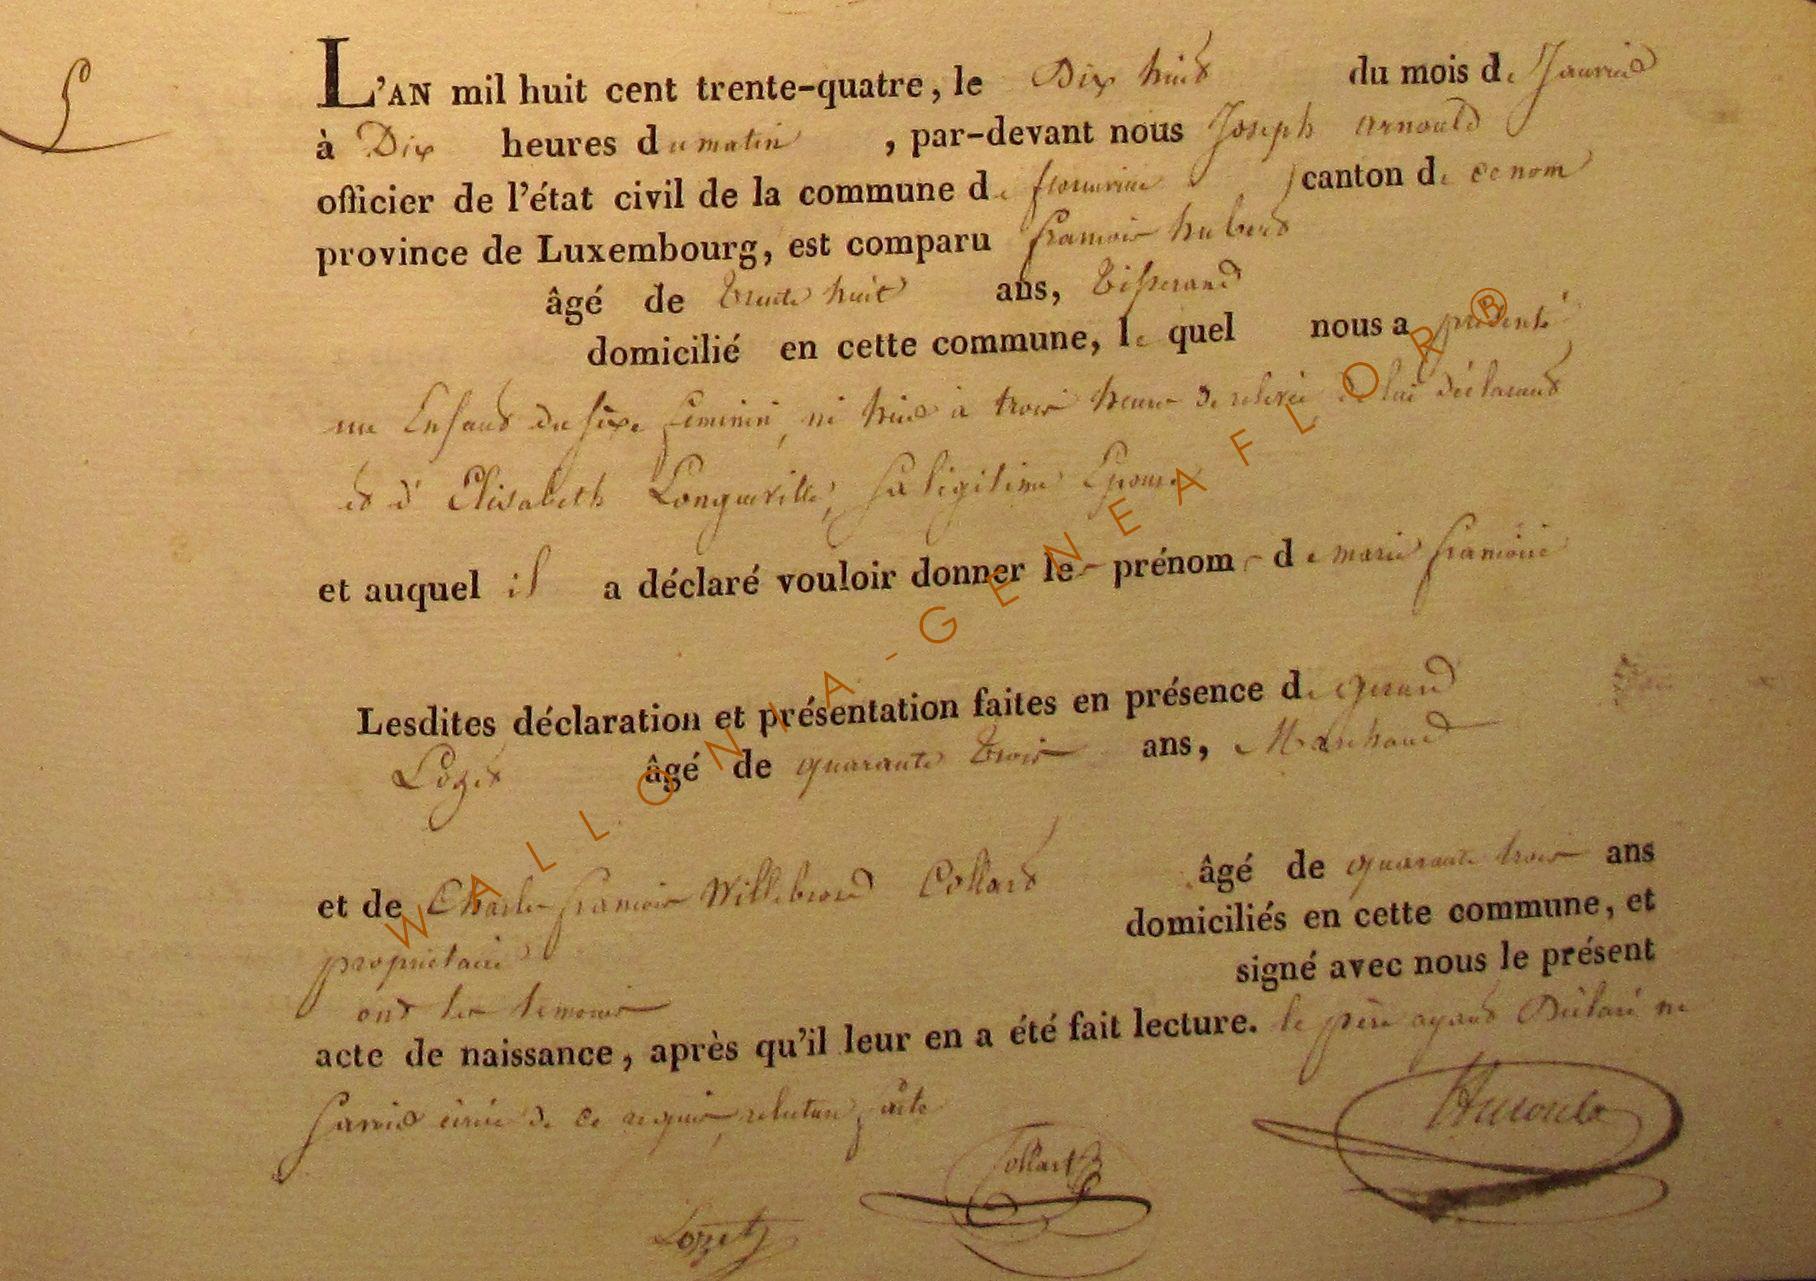 5
L'AN mil huit cent trente-quatre, le Dix huit du mois de Janvier
à Dix heures du matin, par-devant nous Joseph Arnould
officier de l'état civil de la commune de florenville canton de ce nom
province de Luxembourg, est comparu françois hubert
âgé de trente huit ans, Tisserand
domicilié en cette commune, le quel nous a présenté
un Enfant du sexe feminin, né hier à trois heures de relevée de lui déclarant
et d'Elisabeth Longueville, sa légitime Epouse
et auquel il a déclaré vouloir donner le prénom de marie françoise
Lesdites déclaration et présentation faites en présence de gerard
Lozet âgé de quarante trois ans, Marchand
et de Charles françois Willebrord Collard âgé de quarante trois ans
propriétaire domiciliés en cette commune, et
ont les temoins signé avec nous le présent
acte de naissance, après qu'il leur en a été fait lecture. le père ayant Déclaré ne
savoir écrire de ce requis, lecture faite
Arnould
Collart
Lozet
WALLONIA-GENEAFLOR®